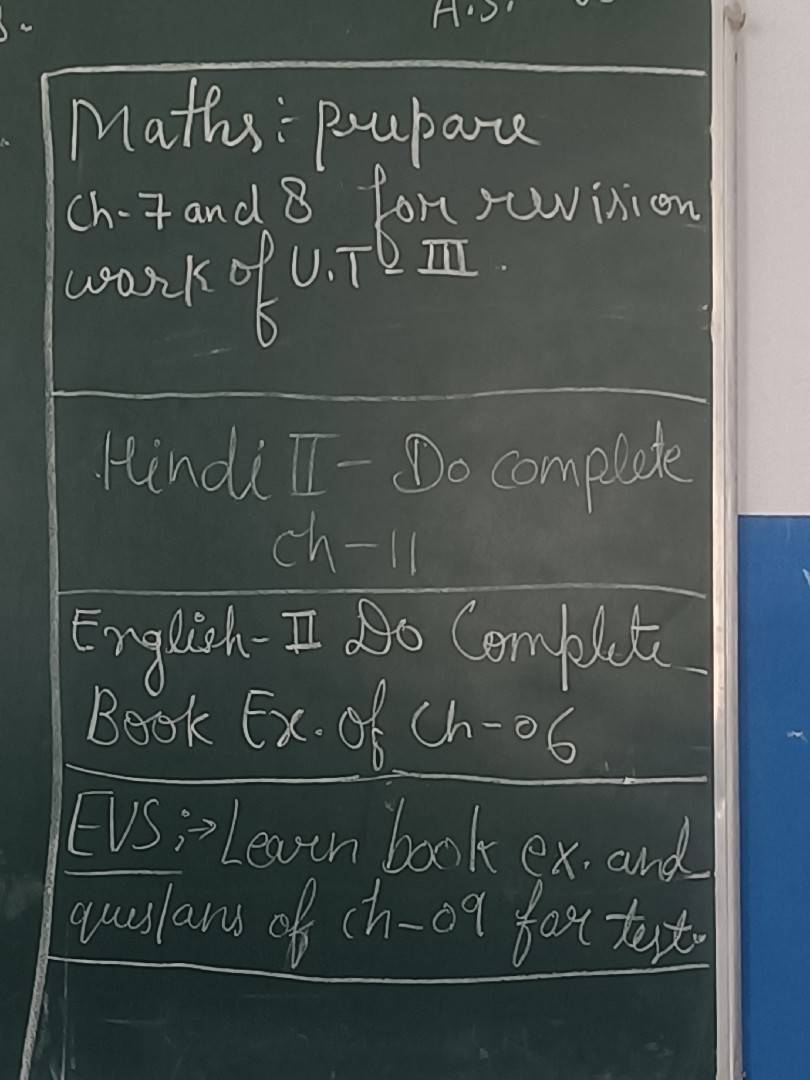 A.S.
Maths:- prepare
Ch-7 and 8 for revision
work of U.T-III.
Hindi II - Do complete
ch-11
English-II Do Complete
Book Ex. of Ch-06
EVS:→ Learn book ex. and
ques/ans of ch-09 for test.